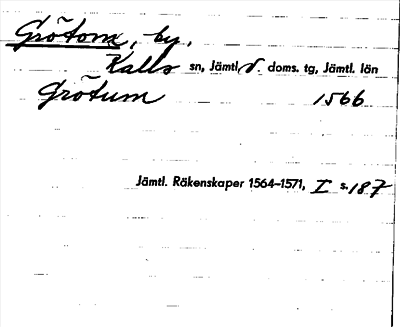 Grötom, by,
Kalls sn, Jämtl. v. doms. tg, Jämtl. län
Grötum 1566
Jämtl. Räkenskaper 1564–1571, I s. 187